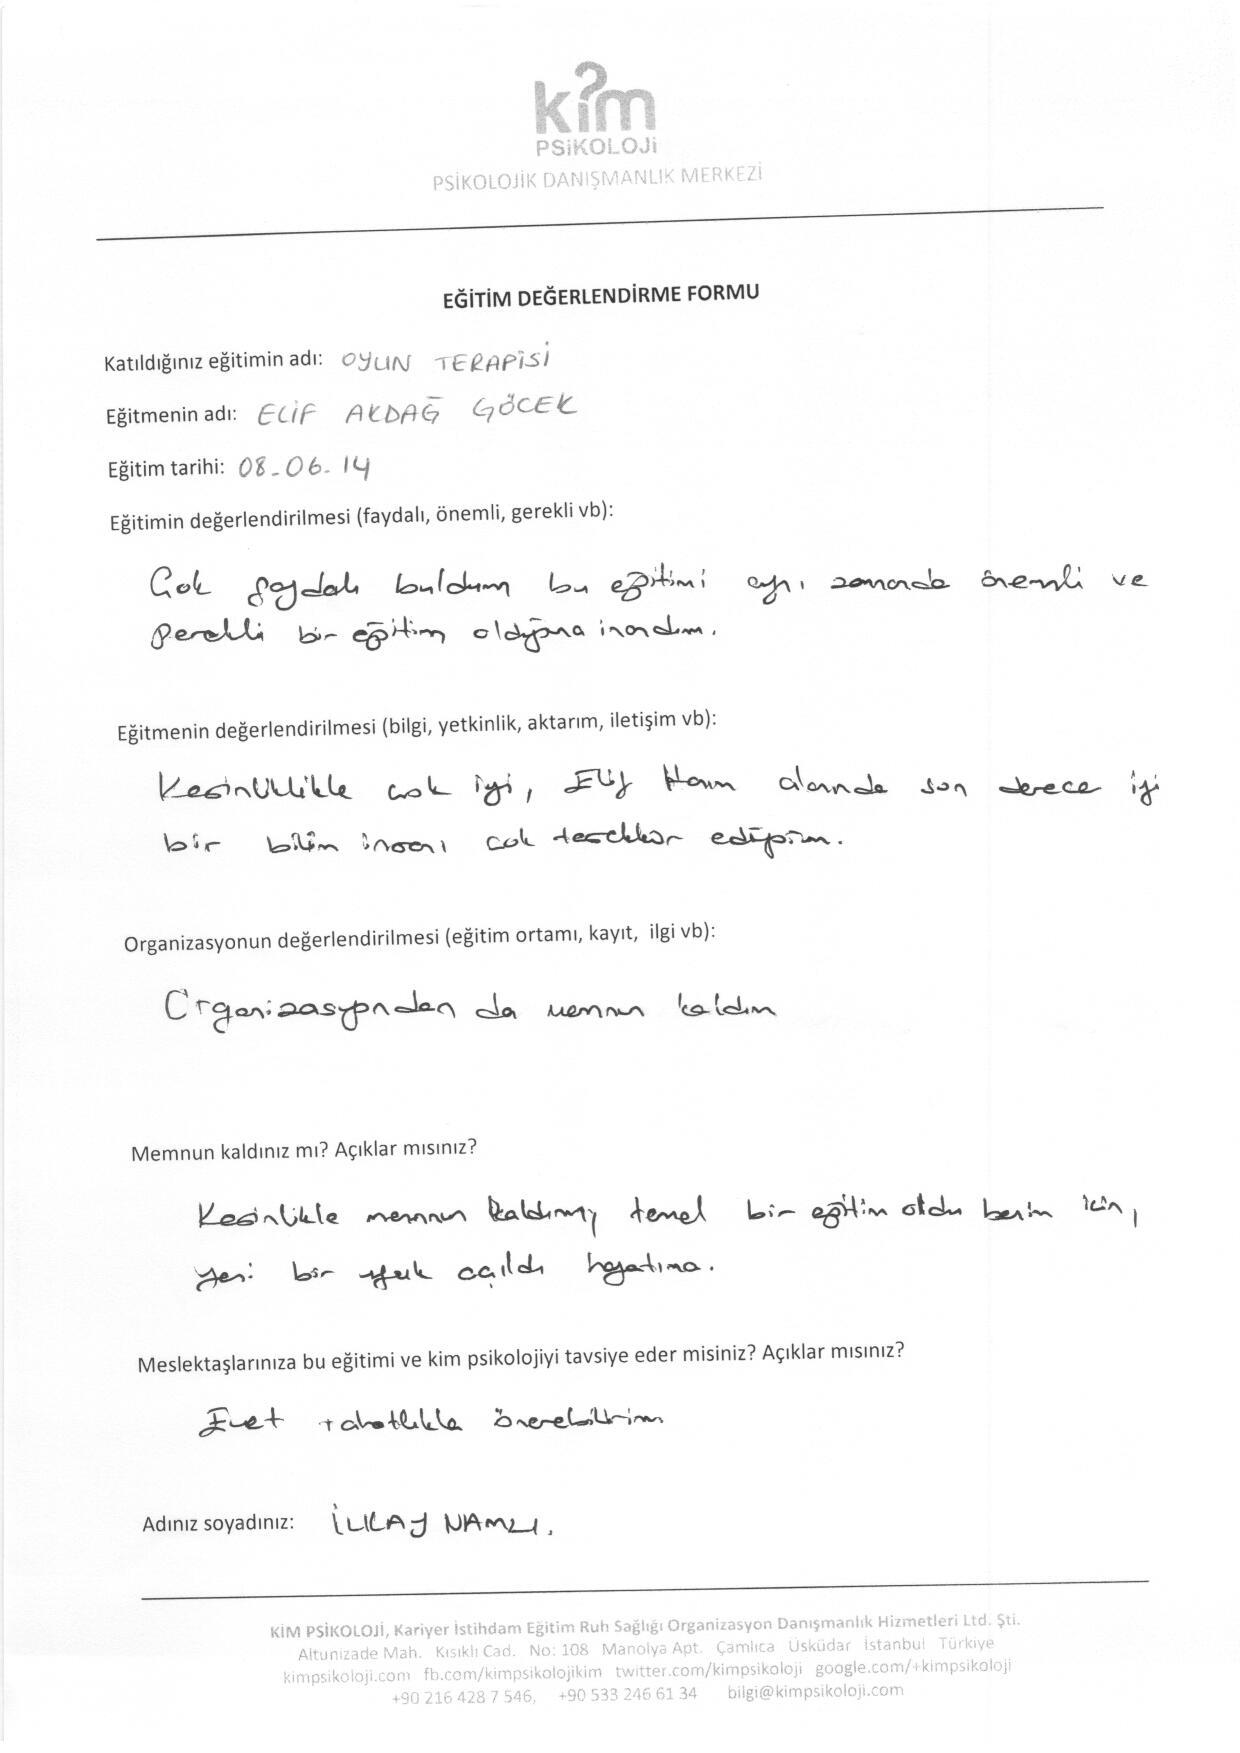 kim
PSİKOLOJİ
PSİKOLOJİK DANIŞMANLIK MERKEZİ
EĞİTİM DEĞERLENDİRME FORMU
Katıldığınız eğitimin adı: OYUN TERAPİSİ
Eğitmenin adı: ELİF AKDAĞ GÖCEK
Eğitim tarihi: 08-06-14
Eğitimin değerlendirilmesi (faydalı, önemli, gerekli vb):
Çok faydalı buldum bu eğitimi aynı zamanda önemli ve
gerekli bir eğitim olduğuna inandım.
Eğitmenin değerlendirilmesi (bilgi, yetkinlik, aktarım, iletişim vb):
Kesinlikle çok iyi, Elif Hanım alanında son derece iyi
bir bilim insanı çok teşekkür ediyorum.
Organizasyonun değerlendirilmesi (eğitim ortamı, kayıt, ilgi vb):
Organizasyondan da memnun kaldım
Memnun kaldınız mı? Açıklar mısınız?
Kesinlikle memnun kaldım, temel bir eğitim oldu benim için,
yeni bir ufuk açıldı hayatıma.
Meslektaşlarınıza bu eğitimi ve kim psikolojiyi tavsiye eder misiniz? Açıklar mısınız?
Evet rahatlıkla önerebilirim
Adınız soyadınız: İLKAY NAMLI.
KİM PSİKOLOJİ, Kariyer İstihdam Eğitim Ruh Sağlığı Organizasyon Danışmanlık Hizmetleri Ltd. Şti.
Altunizade Mah. Kısıklı Cad. No: 108 Manolya Apt. Çamlıca Üsküdar İstanbul Türkiye
kimpsikoloji.com fb.com/kimpsikolojikim twitter.com/kimpsikoloji google.com/+kimpsikoloji
+90 216 428 7 546, +90 533 246 61 34 bilgi@kimpsikoloji.com